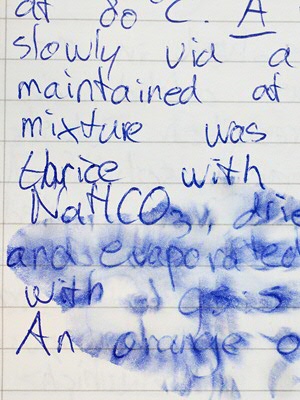 at 80 °C. A
slowly via a
maintained at
mixture was
thrice with
NaHCO₃, drie
and evaporated
with
An orange o